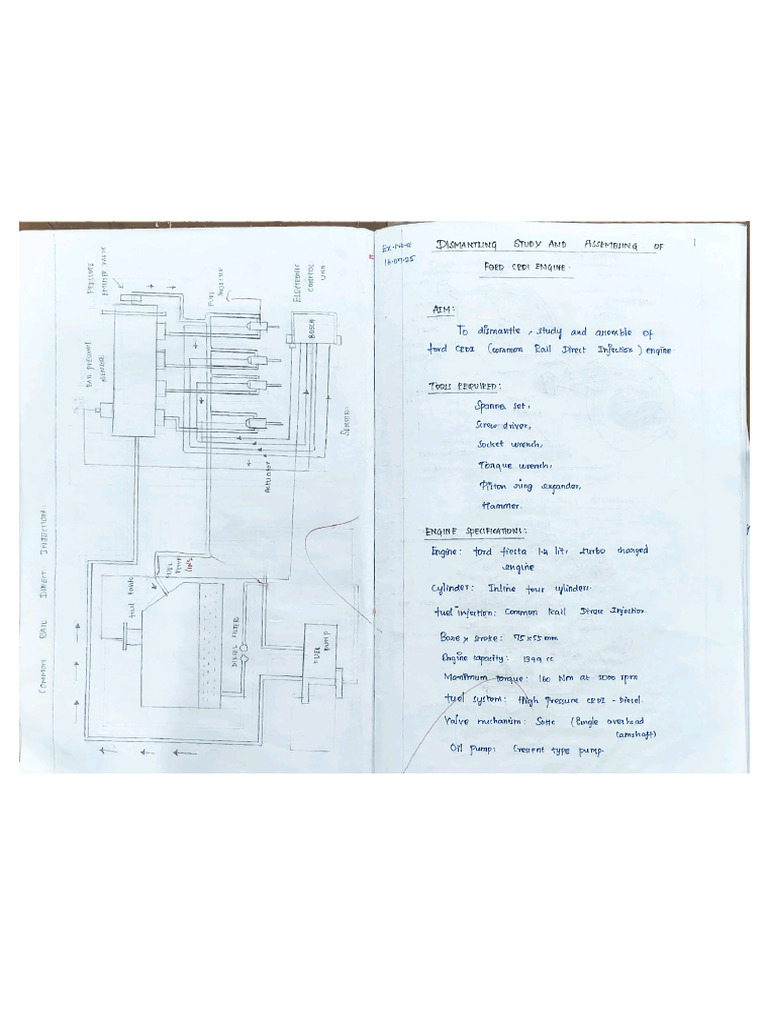 COMMON RAIL DIRECT INJECTION.
PRESSURE
LIMITER VALVE
RAIL PRESSURE
SENSOR
FUEL
INJECTOR
ELECTRONIC
CONTROL
UNIT
BOSCH
SENSORS
Actuator
fuel tank
FUEL
DIESEL FILTER
FUEL
PUMP
Ex.No:
16.07.25
DISMANTLING STUDY AND ASSEMBLING OF
1
FORD CRDI ENGINE.
AIM:
To dismantle, study and assemble of
ford CRDI (common Rail Direct Injection) engine.
TOOLS REQUIRED:
Spanner set,
Screw driver,
Socket wrench,
Torque wrench,
Piston ring expander,
Hammer.
ENGINE SPECIFICATIONS:
Engine: ford fiesta 1.4 lit, turbo charged
engine
Cylinder: Inline four cylinders.
fuel injection: Common Rail Direct Injection.
Bore x stroke: 75x55 mm
Engine capacity: 1399 cc
Maximum torque: 160 Nm at 2000 rpm
fuel system: High Pressure CRDI - Diesel.
Valve mechanism: SOHC (Single overhead
camshaft)
Oil Pump: Cresent type pump.